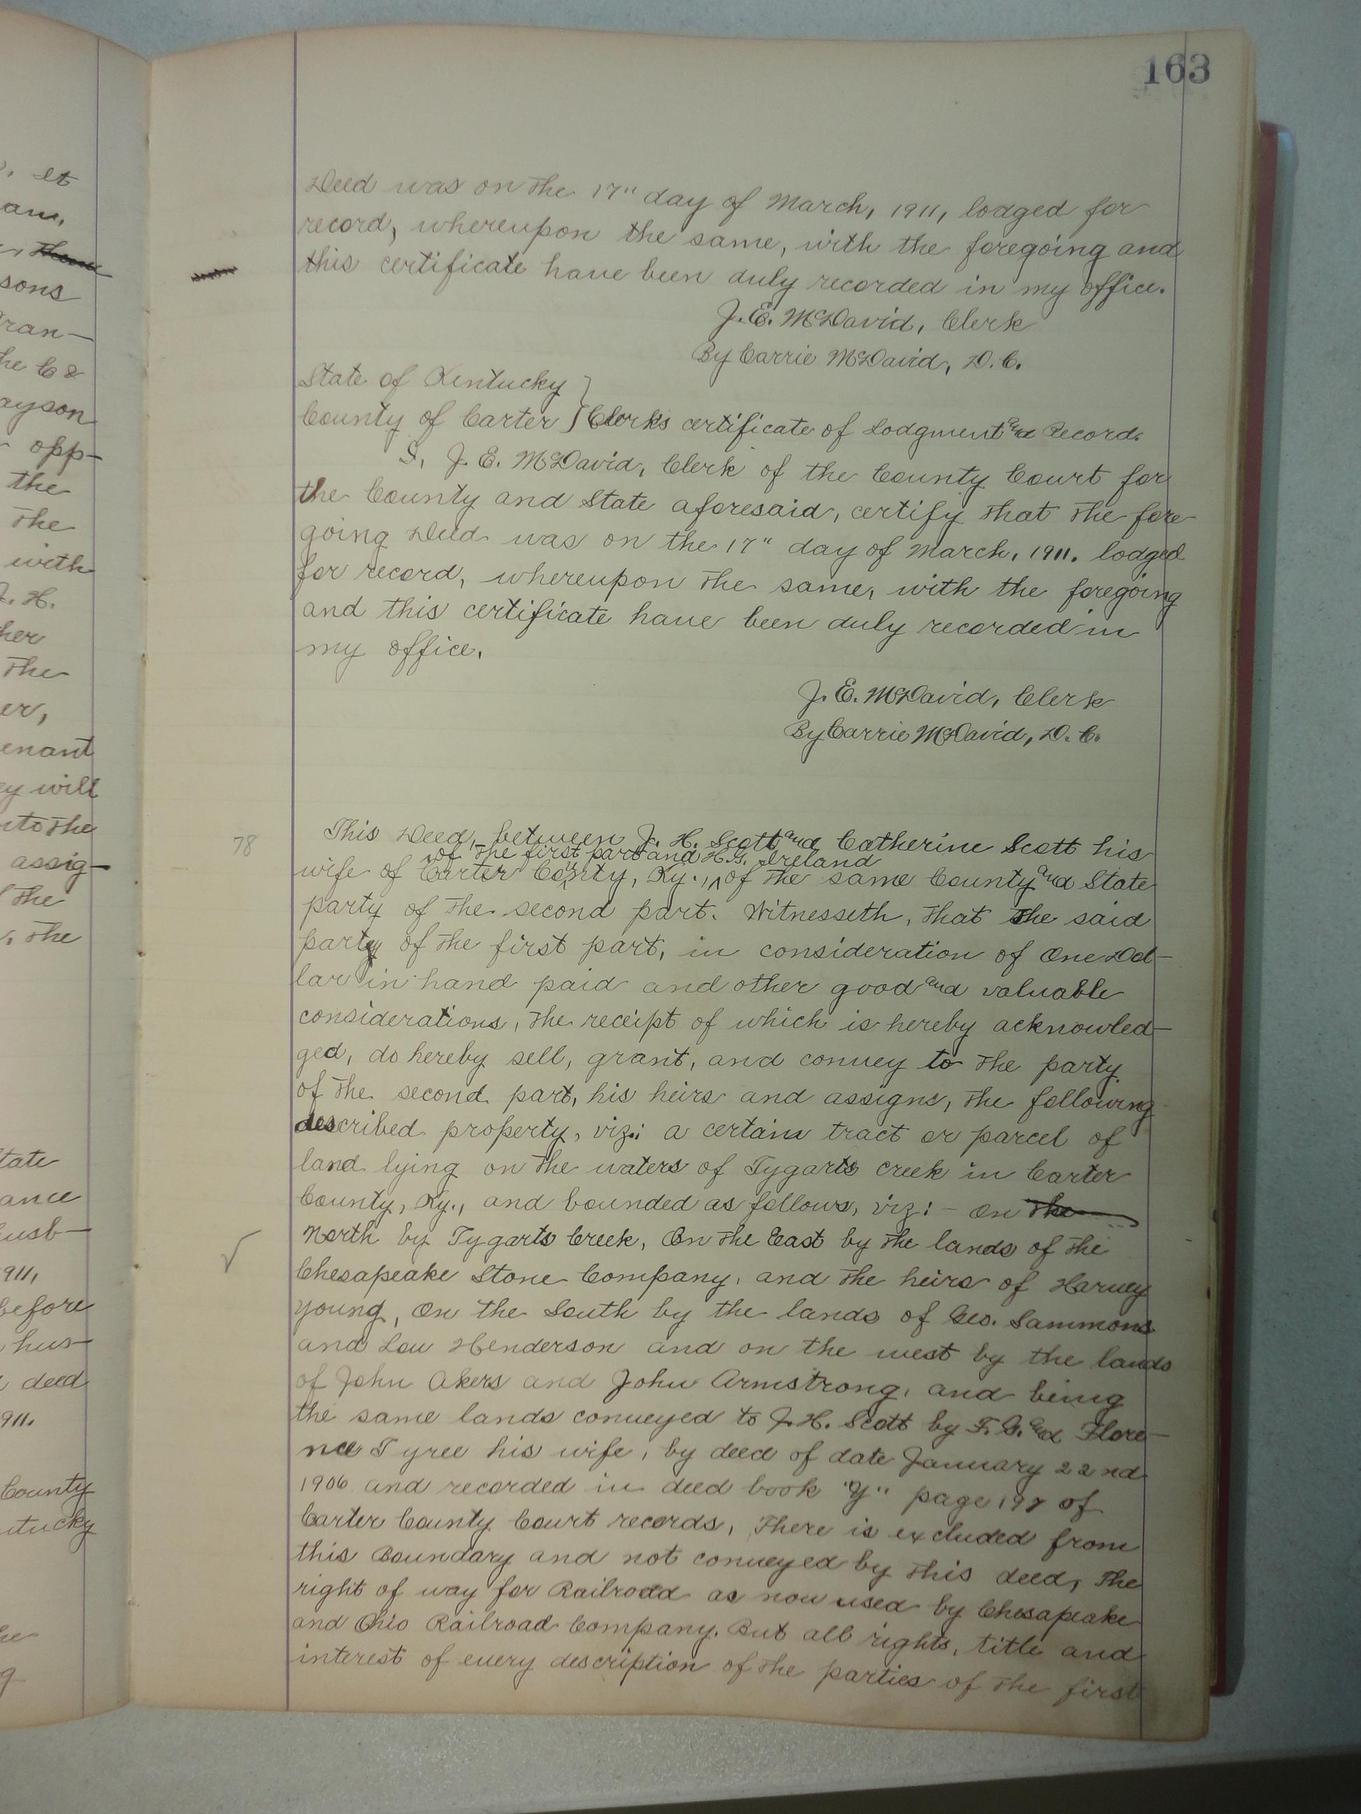 163
Deed was on the 17" day of March, 1911, lodged for
record, whereupon the same, with the foregoing and
this certificate have been duly recorded in my office.
J. E. McDavid, Clerk
By Carrie McDavid, D. C.
State of Kentucky }
County of Carter } Clerk's certificate of Lodgment and Record.
I, J. E. McDavid, Clerk of the County Court for
the County and State aforesaid, certify that the fore-
going Deed was on the 17" day of March, 1911. lodged
for record, whereupon the same, with the foregoing
and this certificate have been duly recorded in
my office.
J. E. McDavid, Clerk
By Carrie McDavid, D. C.
78
This Deed, between J. H. Scott and Catherine Scott his
of the first part and H. G. Ireland
wife of Carter County, Ky., ^ of the same County and State
party of the second part. Witnesseth, that the said
party of the first part, in consideration of One Dol-
lar in hand paid and other good and valuable
considerations, the receipt of which is hereby acknowled-
ged, do hereby sell, grant, and convey to the party
of the second part, his heirs and assigns, the following
described property, viz: a certain tract or parcel of
land lying on the waters of Tygarts creek in Carter
County, Ky., and bounded as follows, viz: - On the
North by Tygarts Creek, On the East by the lands of the
Chesapeake Stone Company, and the heirs of Harvey
Young, On the South by the lands of Geo. Sammons
and Lew Henderson and on the west by the lands
of John Akers and John Armstrong, and being
the same lands conveyed to J. H. Scott by F. G. and Flore-
nce Tyree his wife, by deed of date January 22nd
1906 and recorded in deed book "Y" page 197 of
Carter County Court records, There is excluded from
this Boundary and not conveyed by this deed, the
right of way for Railroad as now used by Chesapeake
and Ohio Railroad Company. But all rights, title and
interest of every description of the parties of the first